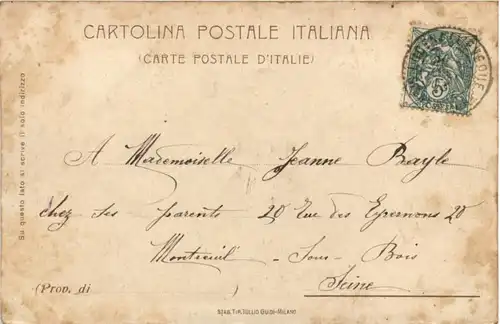 CARTOLINA POSTALE ITALIANA
(CARTE POSTALE D'ITALIE)
5
Su questo lato si scrive il solo indirizzo
A Mademoiselle Jeanne Bayle
chez ses parents 20 Rue des Epernons 20
Montreuil - Sous - Bois
Seine
(Prov. di )
TIP. TULLIO GUIDI-MILANO